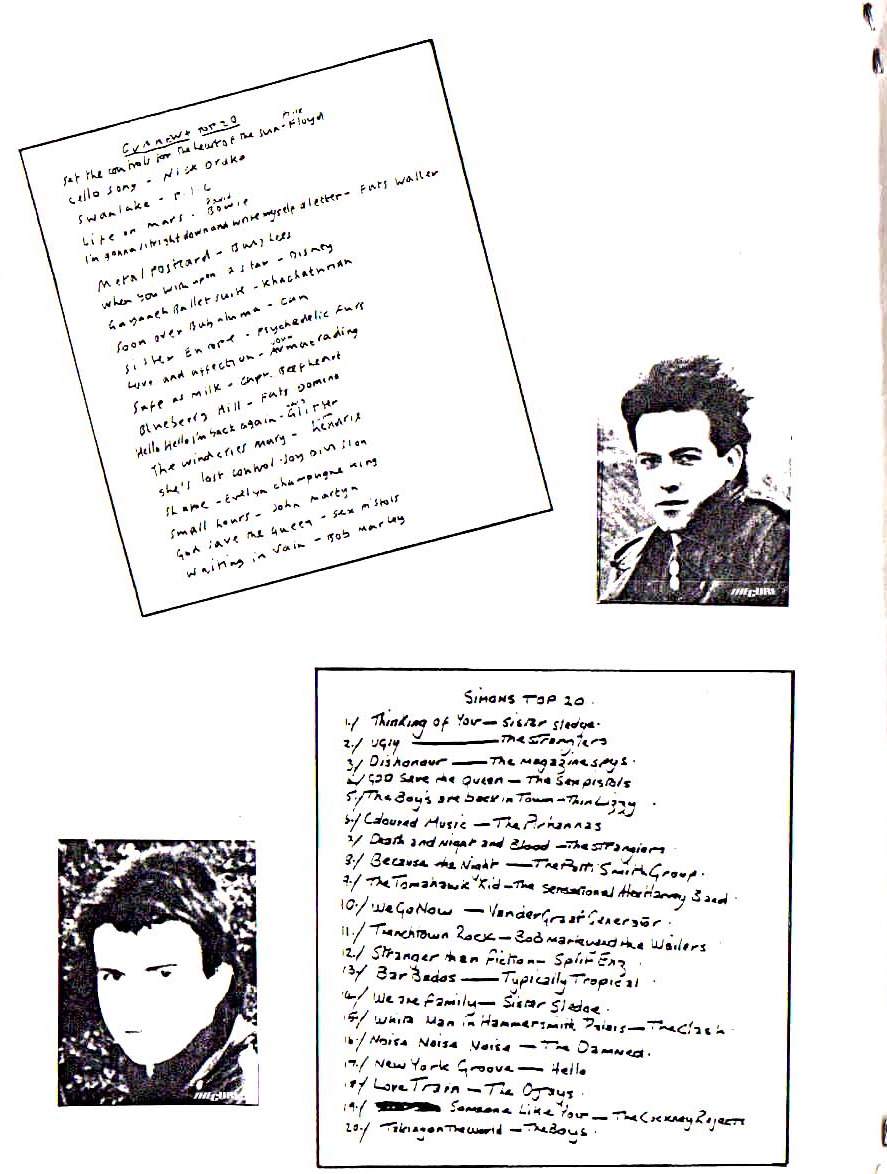 TOP 20
Set the controls for the heart of the sun - Pink Floyd
Cello song - Nick Drake
Swanlake - P.I.L
Life on mars - David Bowie
I'm gonna sit right down and write myself a letter - Fats Waller
Metal Postcard - Banshees
When you wish upon a star - Disney
Gayaneh Ballet suite - Khachaturian
Soon over Babaluma - Can
Sister Europe - Psychedelic Furs
Love and affection - Joan Armatrading
Safe as Milk - Capt. Beefheart
Blueberry Hill - Fats Domino
Hello Hello I'm back again - Glitter
The wind cries Mary - Hendrix
She's lost control - Joy Division
Shame - Evelyn champagne King
Small hours - John Martyn
God save the Queen - Sex Pistols
Waiting in Vain - Bob Marley
THE CURE
SIMONS TOP 20.
1./ Thinking of You — Sister Sledge.
2./ Ugly — The Stranglers
3./ Dishonour — The Magazine Spys.
4./ GOD Save the Queen — The Sex pistols
5./ The Boy's are back in Town — Thin Lizzy.
6./ Coloured Music — The Pirhannas
7./ Death and Night and Blood — The Stranglers
8./ Because the Night — The Patti Smith Group.
9./ The Tomahawk Kid — The Sensational Alex Harvey Band.
10./ We Go Now — Van der Graaf Generator.
11./ Trenchtown Rock — Bob Marley and the Wailers
12./ Stranger than Fiction — Split Enz.
13./ Bar Bados — Typically Tropical.
14./ We are Family — Sister Sledge.
15./ White Man in Hammersmith Palais — The Clash.
16./ Noise Noise Noise — The Damned.
17./ New York Groove — Hello
18./ Love Train — The Ojays.
19./ Someone Like You — The Cockney Rejects
20./ Taking on The World — The Boys.
THE CURE